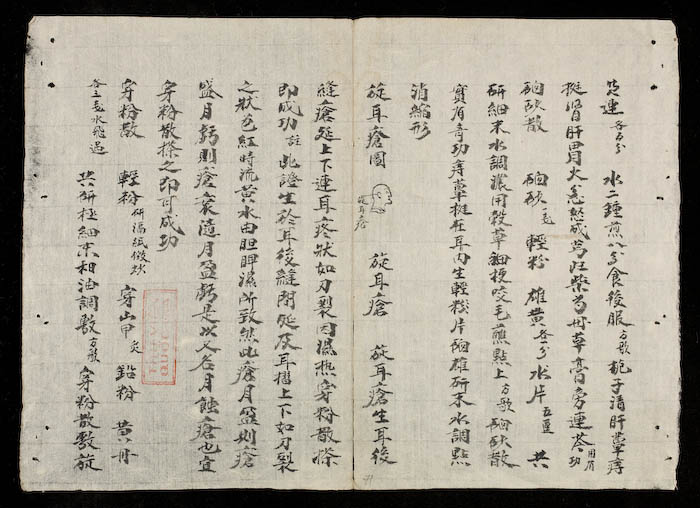 芩連各五分 水二鍾煎八分食後服方歌 梔子清肝蕈痔
挺腎肝胃火忿怒成芎江柴芍丹草膏旁連芩功
硇砂散 硇砂一錢 輕粉 雄黃各一分 水片五厘 共
研細末水調濃用穀草細梗咬毛蘸點上方歌硇砂散
實有奇功痔蕈挺在耳內生輕粉片硇雄研末水調點
消縮形
旋耳瘡圖 旋耳瘡 旋耳瘡生耳後
旋耳瘡
縫瘡延上下連耳疼狀如刀裂因濕熱穿粉散搽
即成功註此證生於耳後縫間延及耳摺上下如刀裂
之狀色紅時流黃水由胆脾濕所致然此瘡月盈則瘡
盛月虧則瘡衰隨月盈虧是以又名月蝕瘡也宜
穿粉散搽之即可成功
穿粉散 輕粉研隔紙微炒 穿山甲炙 鉛粉 黃丹
各三錢水飛過 共研極細末和油調敷方歌 穿粉散敷旋